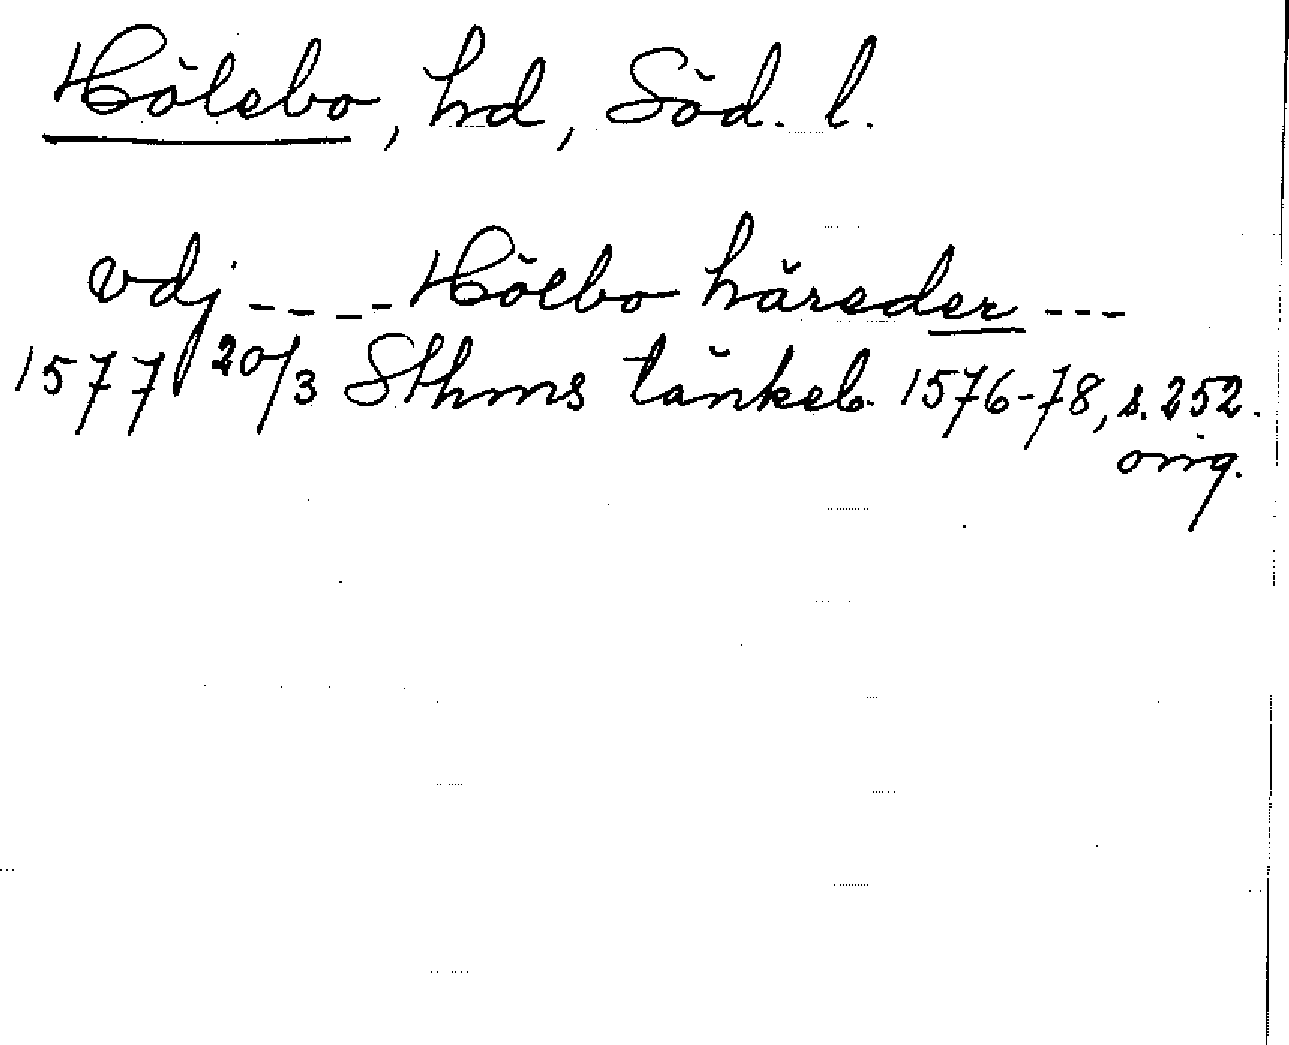 Hölebo, hd, Söd. l.
vdj ---- Hölbo häreder ---
1577 20/3 Sthms tänkeb. 1576-78, s. 252.
orig.